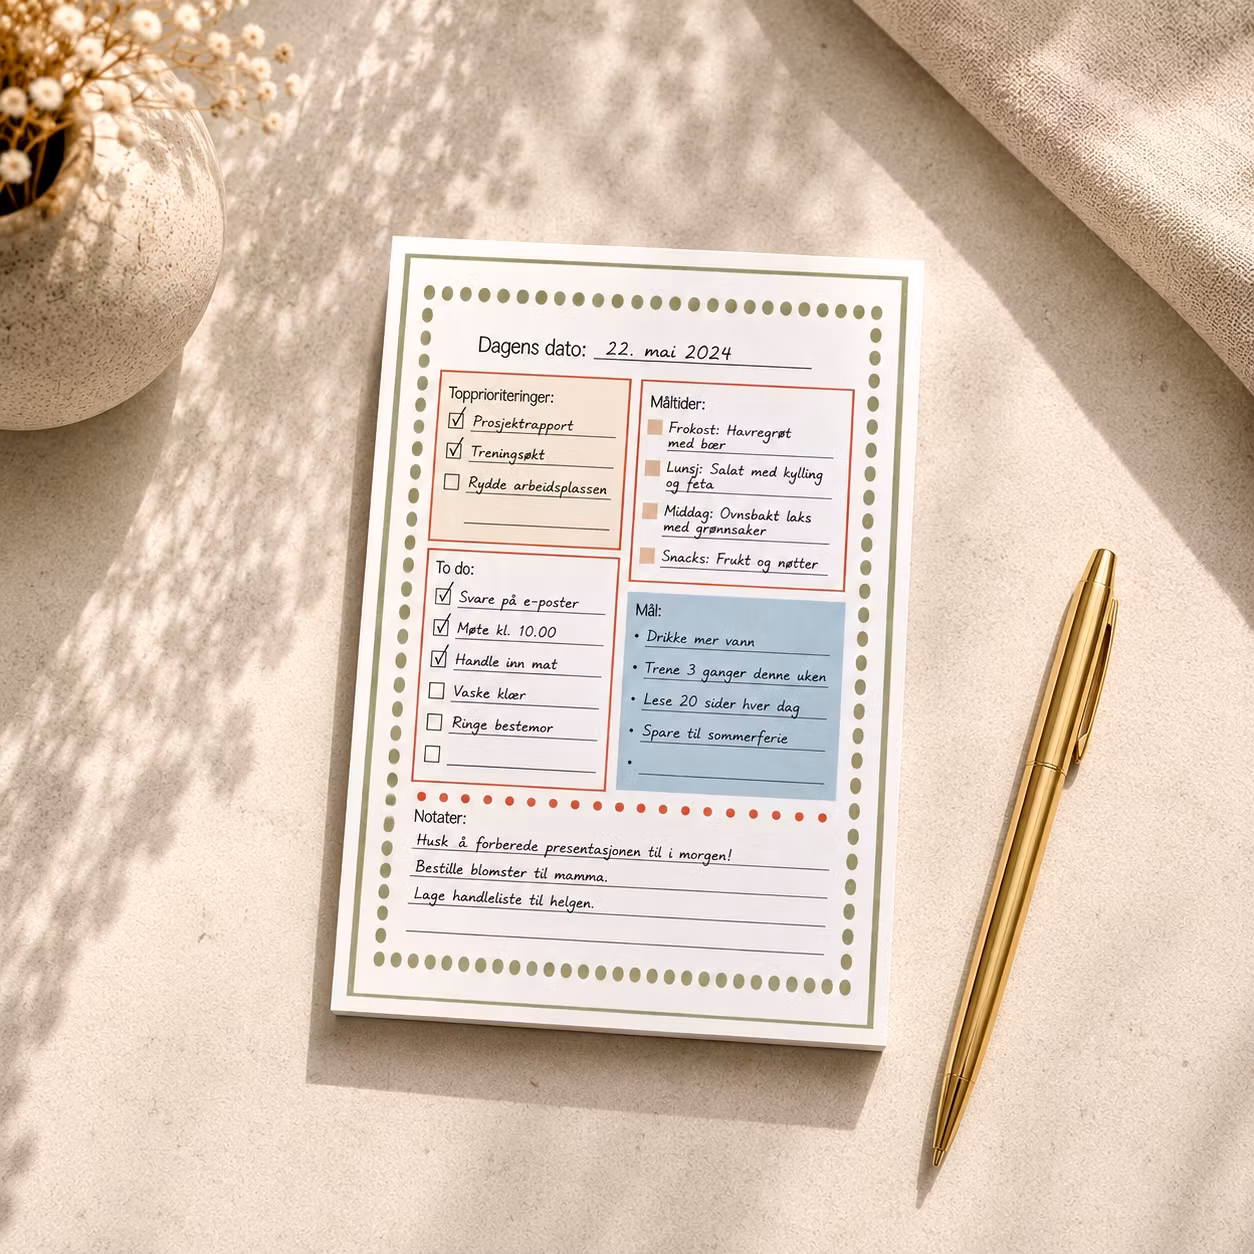 Dagens dato: 22. mai 2024
Topprioriteringer:
Prosjektrapport
Treningsøkt
Rydde arbeidsplassen
Måltider:
Frokost: Havregrøt
med bær
Lunsj: Salat med kylling
og feta
Middag: Ovnsbakt laks
med grønnsaker
Snacks: Frukt og nøtter
To do:
Svare på e-poster
Møte kl. 10.00
Handle inn mat
Vaske klær
Ringe bestemor
Mål:
• Drikke mer vann
• Trene 3 ganger denne uken
• Lese 20 sider hver dag
• Spare til sommerferie
•
Notater:
Husk å forberede presentasjonen til i morgen!
Bestille blomster til mamma.
Lage handleliste til helgen.